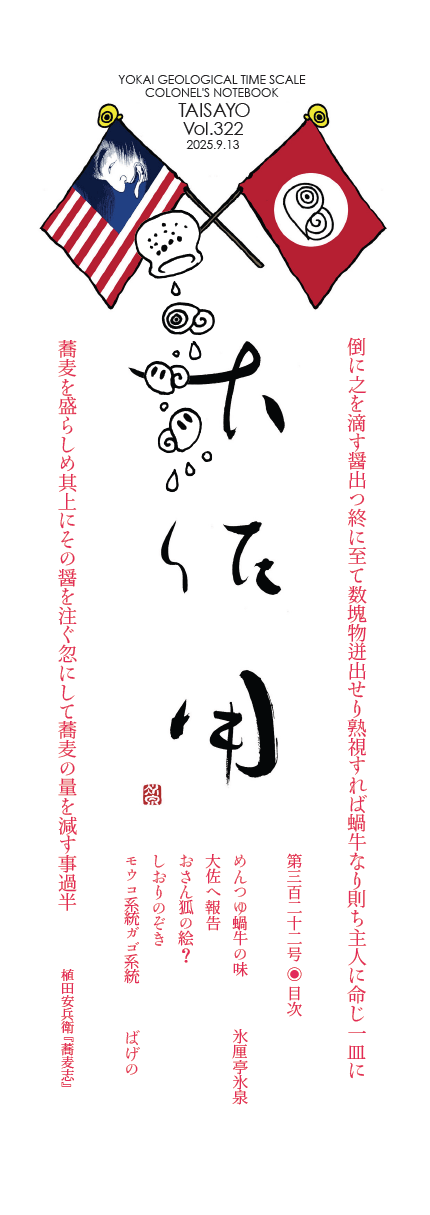 YOKAI GEOLOGICAL TIME SCALE
COLONEL'S NOTEBOOK
TAISAYO
Vol.322
2025.9.13
大佐用
倒に之を滴す醤出つ終に至て数塊物迸出せり熟視すれば蝸牛なり則ち主人に命じ一皿に
蕎麦を盛らしめ其上にその醤を注ぐ忽にして蕎麦の量を減す事過半
植田安兵衛『蕎麦志』
第三百二十二号◉目次
めんつゆ蝸牛の味 氷厘亭氷泉
大佐へ報告
おさん狐の絵？
しおりのぞき
モウコ系統ガゴ系統 ばげの